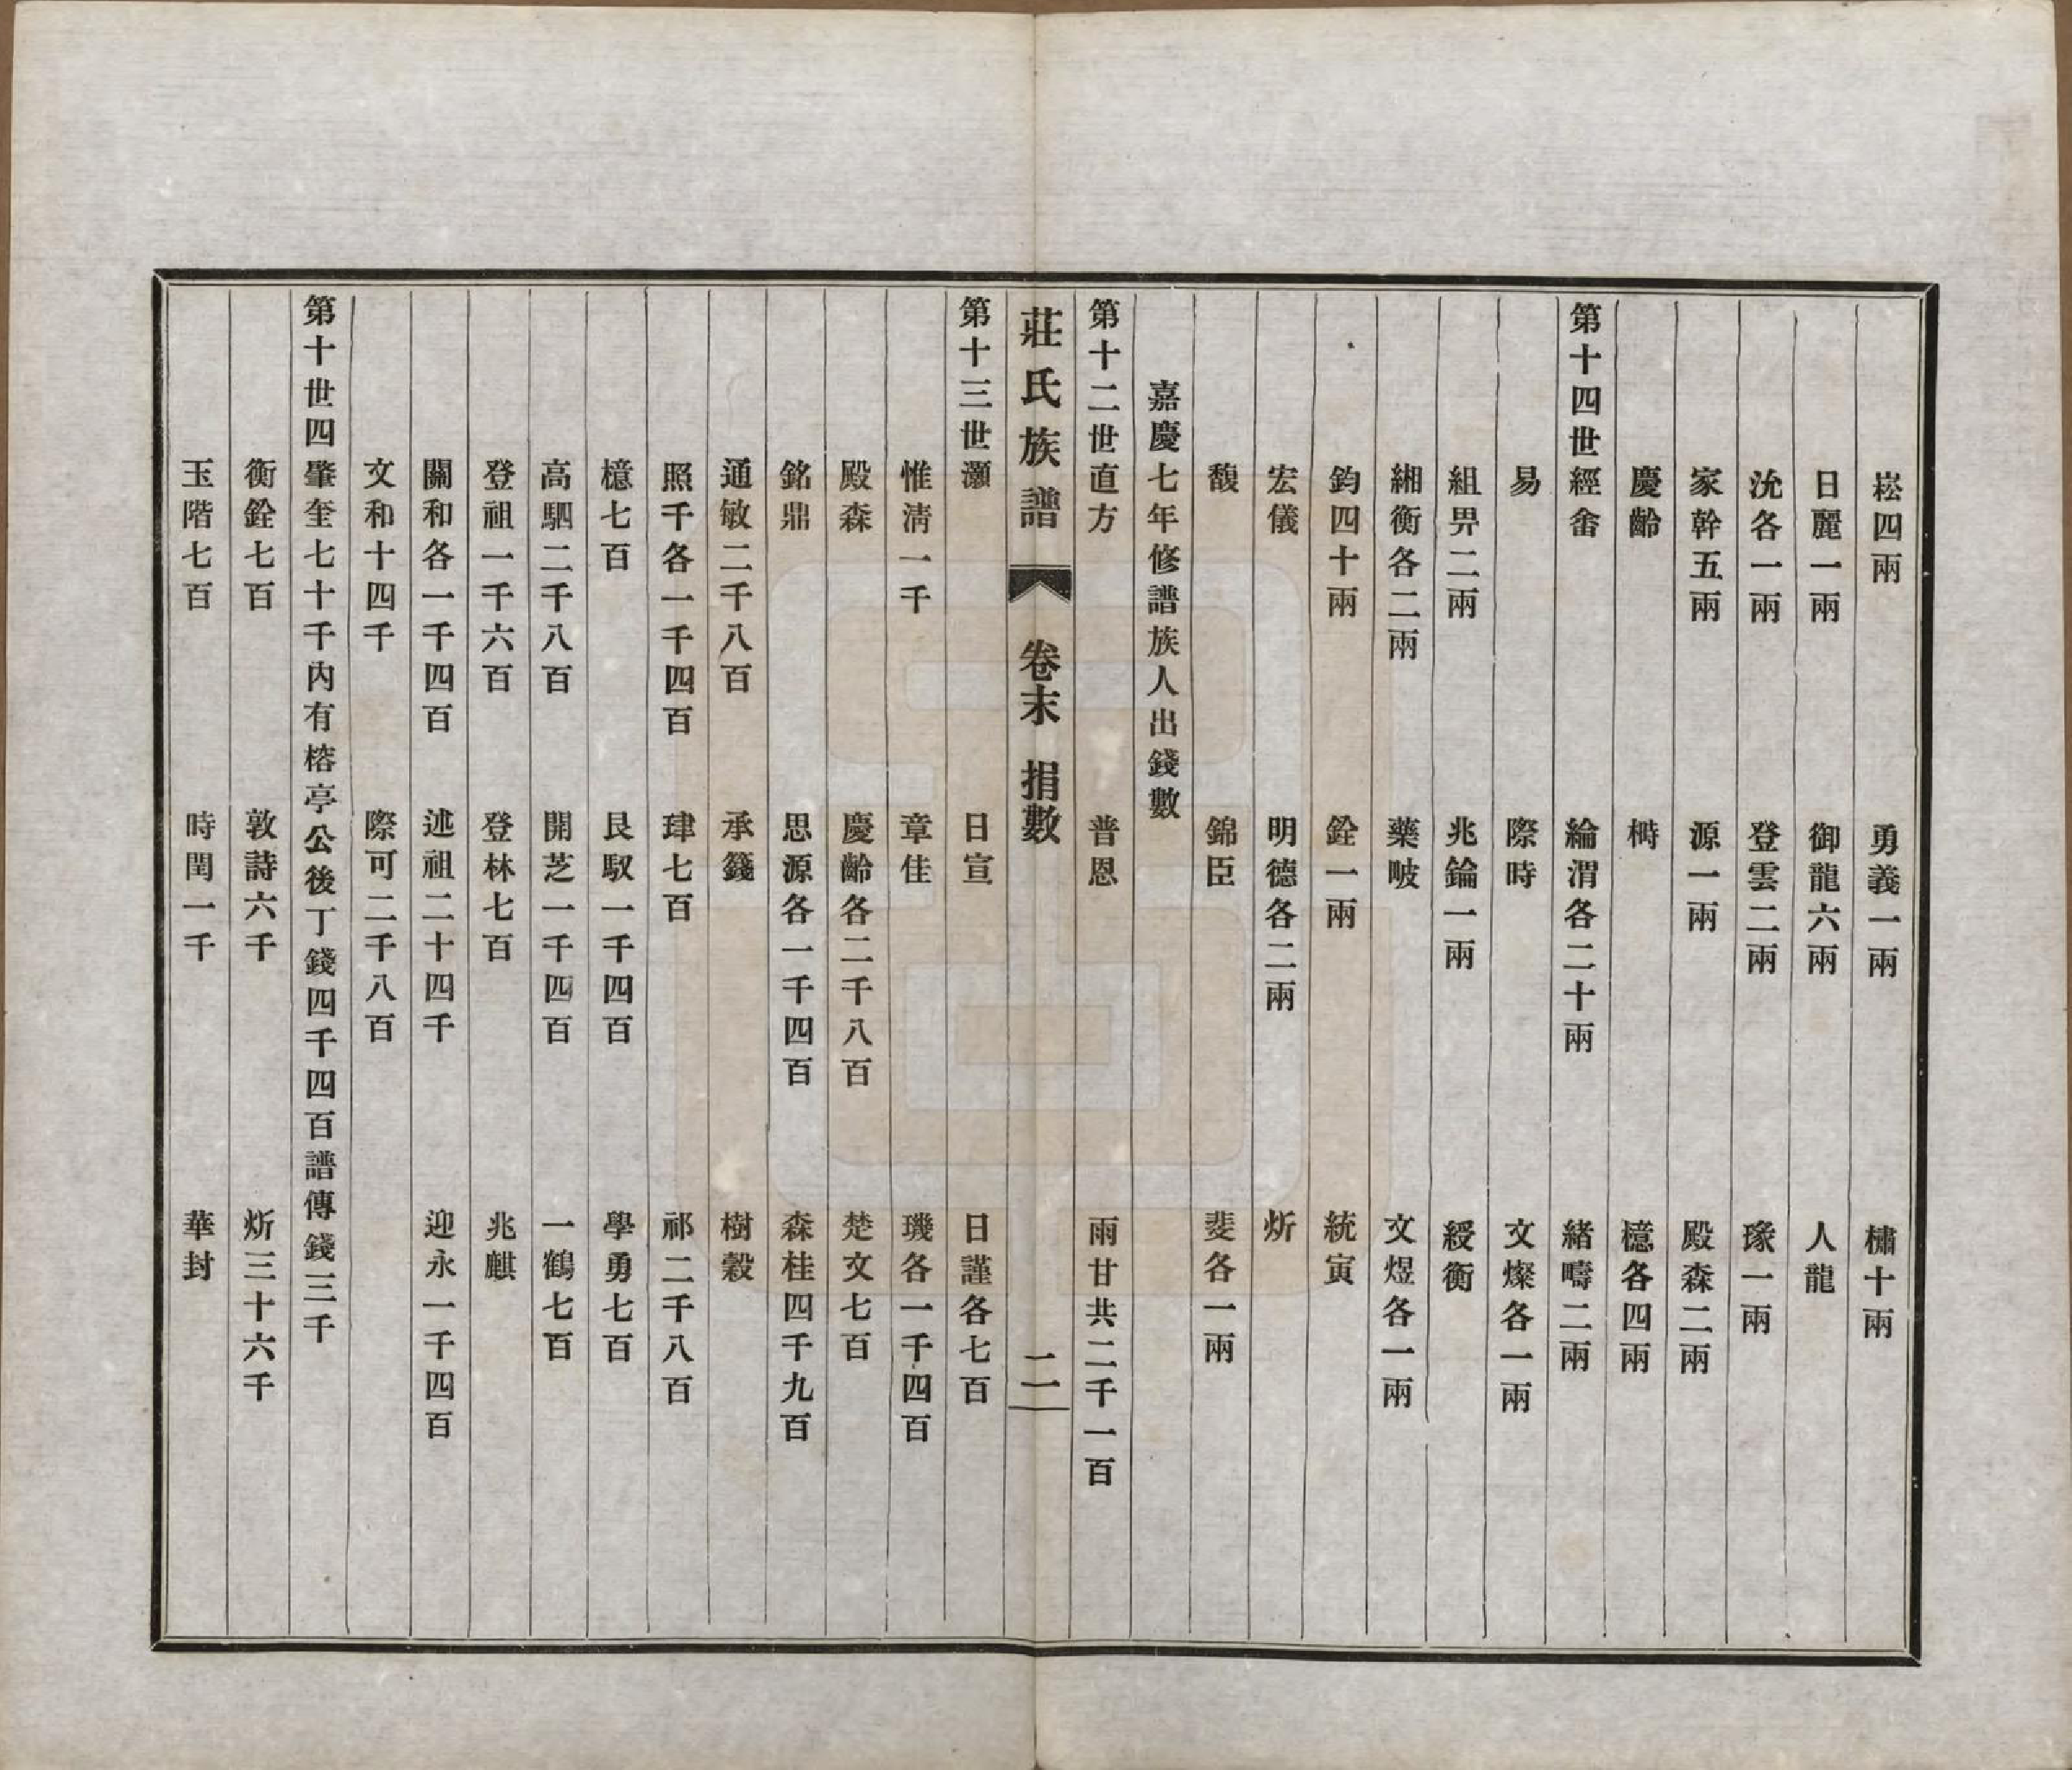 崧四兩　勇義一兩　櫹十兩
日麗一兩　御龍六兩　人龍
沇各一兩　登雲二兩　豫一兩
家幹五兩　源一兩　殿森二兩
慶齡　檹　檍各四兩
第十四世經畬　綸渭各二十兩　緒疇二兩
易　際時　文燦各一兩
組畀二兩　兆錀一兩　綬衡
緗衡各二兩　藥畯　文煜各一兩
鈞四十兩　銓一兩　統寅
宏儀　明德各二兩　炘
馥　錦臣　斐各一兩
嘉慶七年修譜族人出錢數
第十二世直方　普恩　雨甘共二千一百
莊氏族譜　卷末　捐數　二一
第十三世灝　日宣　日謹各七百
惟淸一千　章佳　璣各一千四百
殿森　慶齡各二千八百　楚文七百
銘鼎　思源各一千四百　森桂四千九百
通敏二千八百　承籛　樹穀
照千各一千四百　肂七百　祁二千八百
檍七百　艮馭一千四百　學勇七百
高駟二千八百　開芝一千四百　一鶴七百
登祖一千六百　登林七百　兆麒
關和各一千四百　述祖二十四千　迎永一千四百
文和十四千　際可二千八百
第十世四肇奎七十千內有榕亭公後丁錢四千四百譜傳錢三千
衡銓七百　敦詩六千　炘三十六千
玉階七百　時閏一千　華封